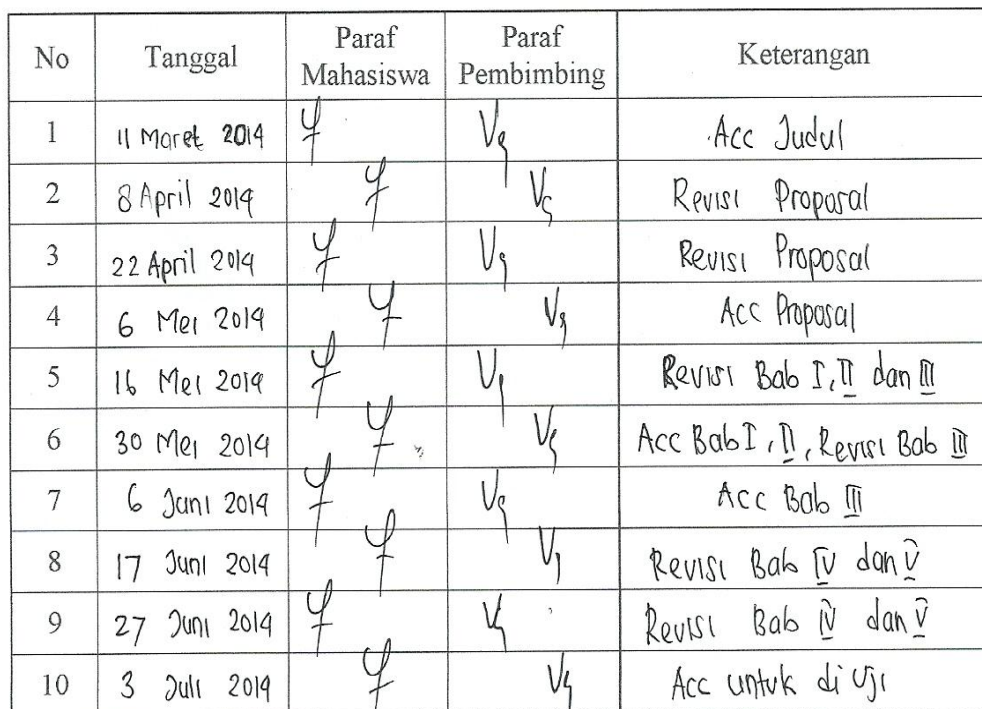 No Tanggal Paraf Mahasiswa Paraf Pembimbing Keterangan
1 11 Maret 2014 Acc Judul
2 8 April 2014 Revisi Proposal
3 22 April 2014 Revisi Proposal
4 6 Mei 2014 Acc Proposal
5 16 Mei 2014 Revisi Bab I, II dan III
6 30 Mei 2014 Acc Bab I, II, Revisi Bab III
7 6 Juni 2014 Acc Bab III
8 17 Juni 2014 Revisi Bab IV dan V
9 27 Juni 2014 Revisi Bab IV dan V
10 3 Juli 2014 Acc untuk di Uji